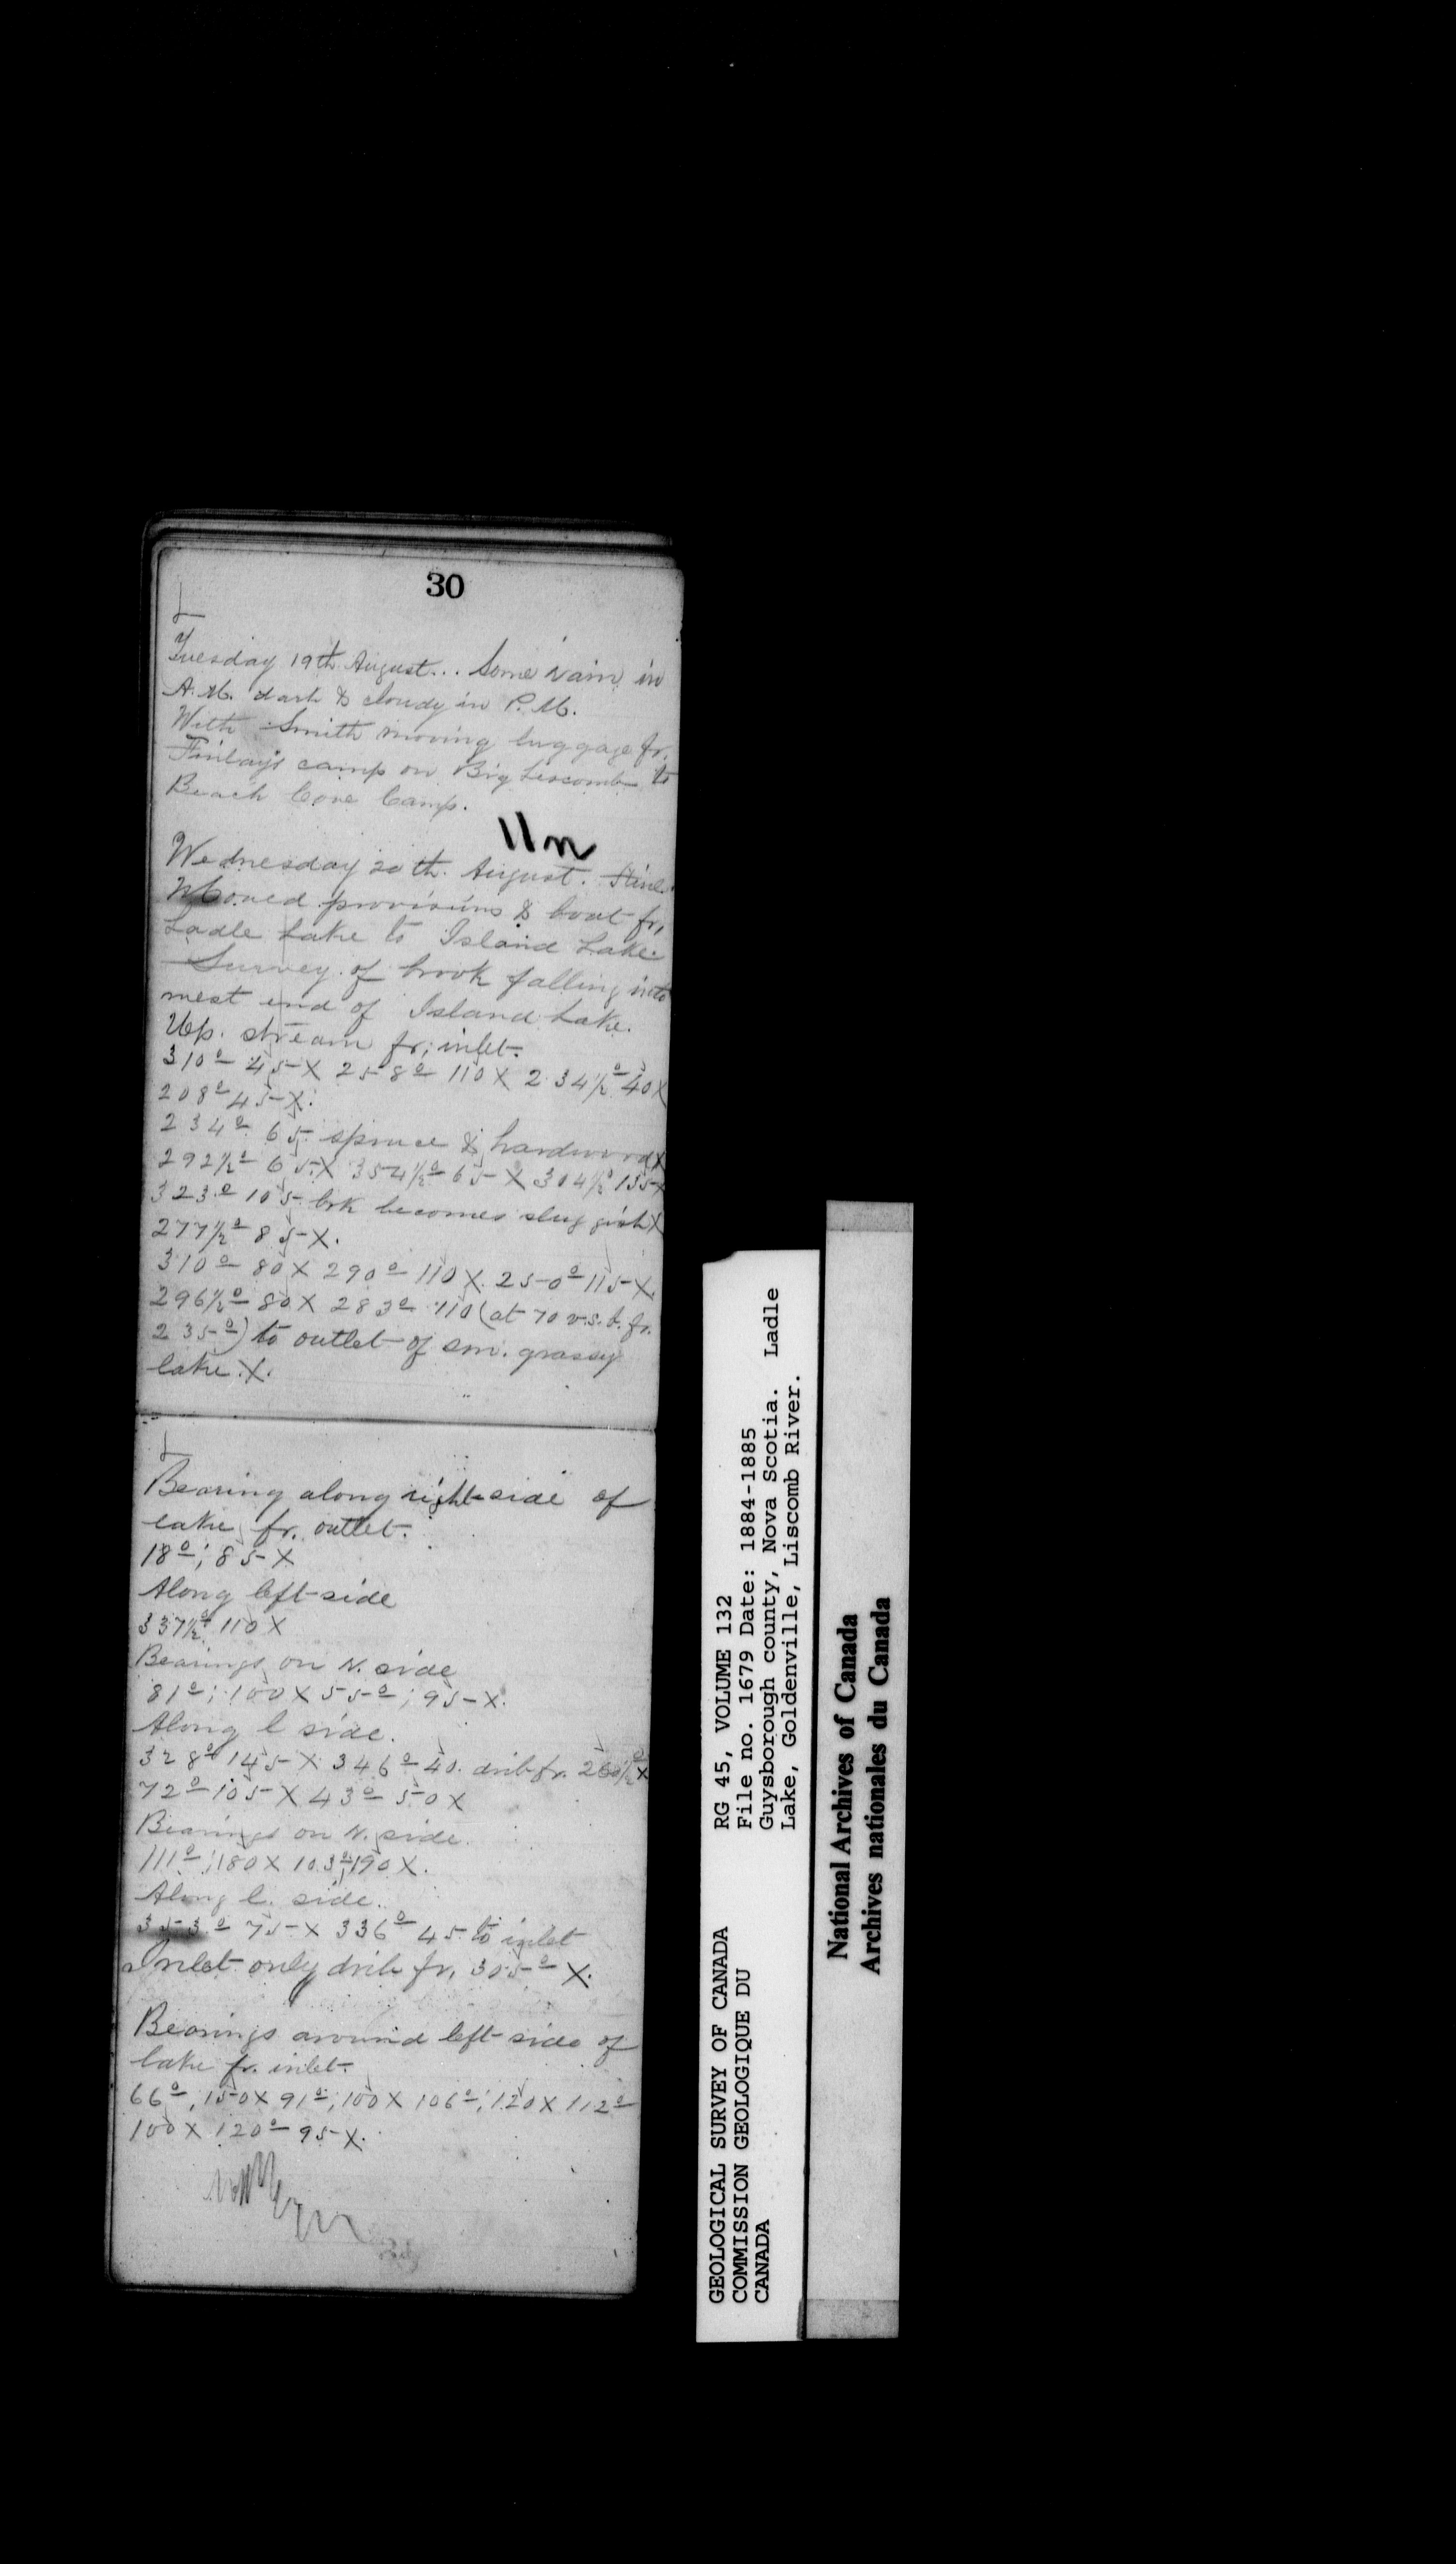 30
Tuesday 19th August... Some rain in
A.M. dark & cloudy in P.M.
With Smith moving luggage fr.
Finlay's camp on Big Liscomb to
Beach Cove Camp.
11m
Wednesday 20th. August. Fine.
Moved provisions & boat fr,
Ladle Lake to Island Lake.
Survey of brook falling into
west end of Island Lake.
Up. stream fr; inlet.
310º 45 X 258º 110 X 234½º 40 X
208º 45 X.
234º 65 spruce & hardwood X
292½º 65 X 354½º 65 X 304½º 135 X
323º 105 brk becomes sluggish X
277½º 85 X.
310º 80 X 290º 110 X. 250º 115 X.
296½º 80 X 283º 110 (at 70 v.s.b. fr.
235º) to outlet of sm. grassy
lake. X.
Bearing along right side of
lake fr. outlet.
18º; 85 X
Along left side
337½º 110 X
Bearings on N. side
81º; 100 X 55º; 95 X.
Along l side.
328º 145 X 346º 40. drib fr. X
72º 105 X 43º 50 X
Bearings on N. side.
111º; 180 X 103º; 190 X.
Along l. side.
353º 75 X 336º 45 to inlet
Inlet only drib fr, 305º X.
Bearings around left side of
lake fr. inlet.
66º; 150 X 91º; 100 X 106º; 120 X 112º
100 X 120º 95 X.
GEOLOGICAL SURVEY OF CANADA
COMMISSION GEOLOGIQUE DU
CANADA
RG 45, VOLUME 132
File no. 1679 Date: 1884-1885
Guysborough county, Nova Scotia. Ladle
Lake, Goldenville, Liscomb River.
National Archives of Canada
Archives nationales du Canada